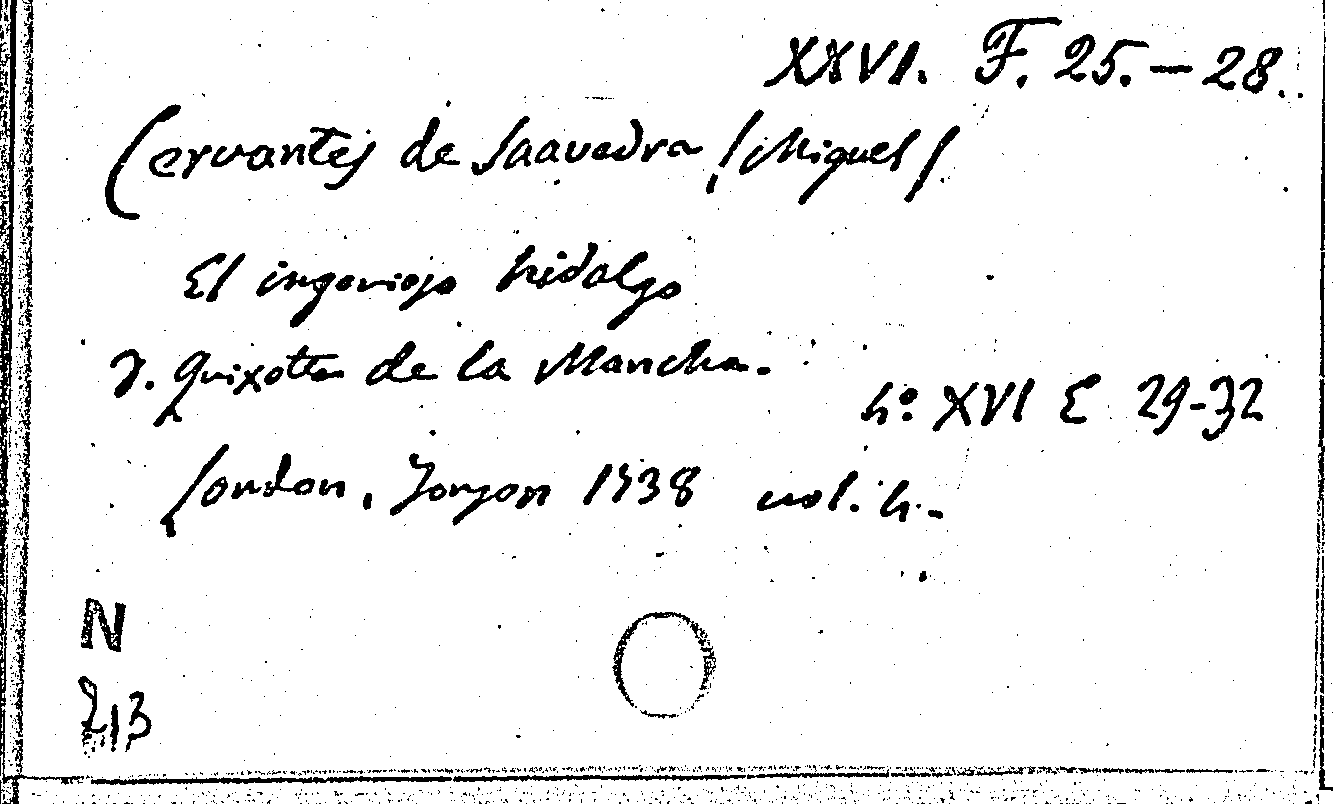 XXVI. F. 25. — 28.
Cervantes de Saavedra /Miguel/
El ingenioso hidalgo
D. Quixote de la Mancha.
4º XVI E 29-32
London, Tonson 1738 vol. 4.-
N
213